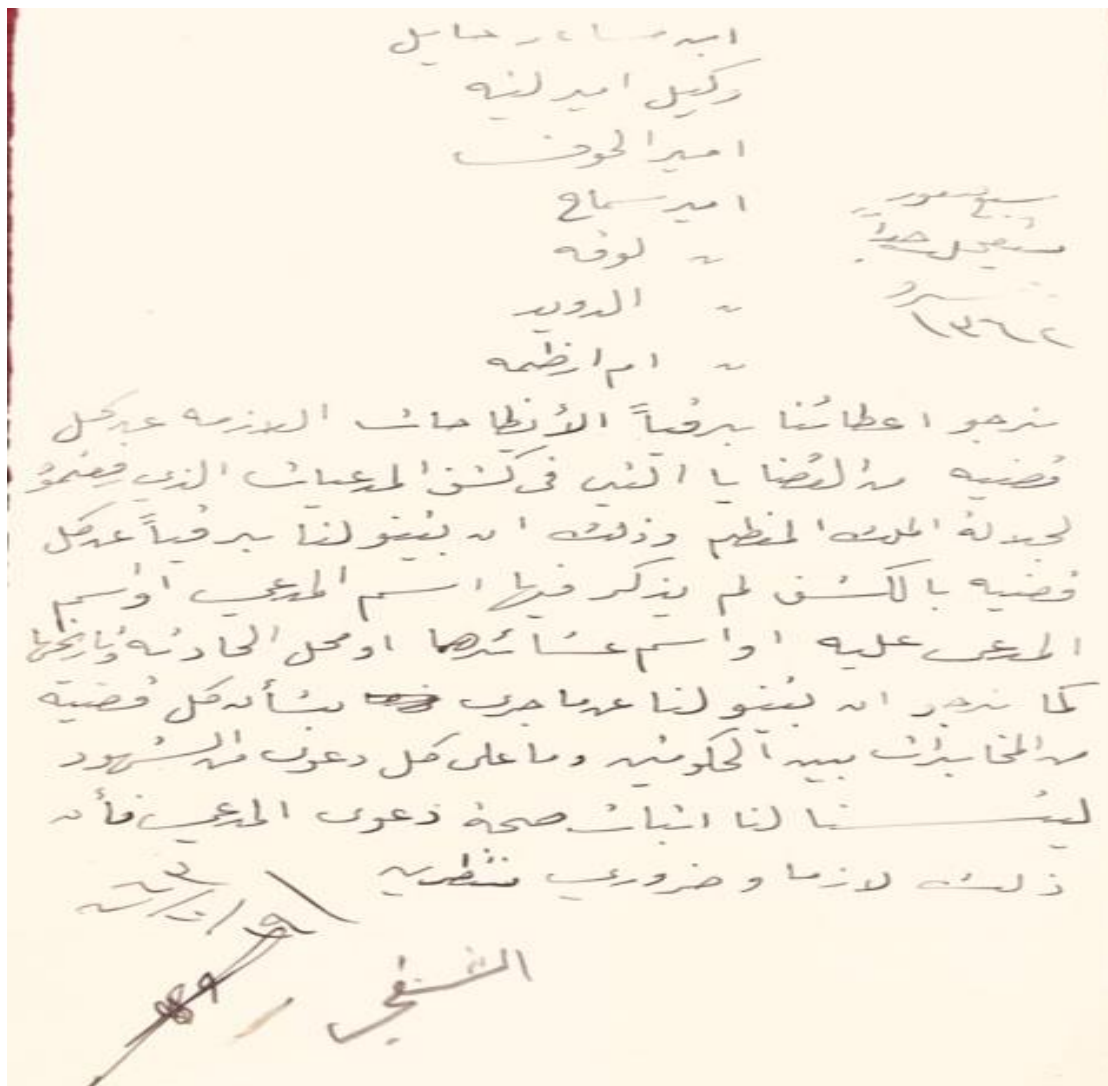 ابن مساعد حايل
وكيل امير لينه
امير الجوف
امير سماح
〃 لوقه
〃 الدويد
〃 ام ارظمه
مستعجل جداً
١٣٦٢
نرجو اعطائنا برقياً الأيظاحات اللازمه عن كل
قضيه من القضايا التي في كشف المدعيات الذي
لجلالة الملك المعظم وذلك ان تفيدو لنا برقياً عن كل
قضيه بالكشف لم يذكر فيها اسم المدعي او اسم
المدعى عليه او اسم عشائرهما او محل الحادثه وتاريخها
كما نرجو ان تفيدو لنا عن ما جرى بشأن كل قضية
من المخابرات بين الحكومتين وما على كل دعوى من الشهود
لنا اثبات صحة دعوى المدعي فأن
ذلك لازما وضروري منتظرين